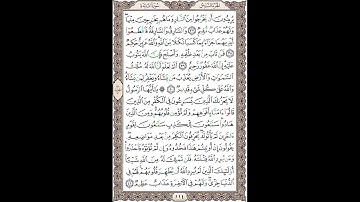 الجزء السادس سورة المائدة
يُرِيدُونَ أَن يَخْرُجُوا۟ مِنَ ٱلنَّارِ وَمَا هُم بِخَٰرِجِينَ مِنْهَا
وَلَهُمْ عَذَابٌ مُّقِيمٌ ٣٧ وَٱلسَّارِقُ وَٱلسَّارِقَةُ فَٱقْطَعُوٓا۟
أَيْدِيَهُمَا جَزَآءًۢ بِمَا كَسَبَا نَكَٰلًا مِّنَ ٱللَّهِ وَٱللَّهُ عَزِيزٌ حَكِيمٌ
٣٨ فَمَن تَابَ مِنۢ بَعْدِ ظُلْمِهِۦ وَأَصْلَحَ فَإِنَّ ٱللَّهَ يَتُوبُ
عَلَيْهِ إِنَّ ٱللَّهَ غَفُورٌ رَّحِيمٌ ٣٩ أَلَمْ تَعْلَمْ أَنَّ ٱللَّهَ لَهُۥ مُلْكُ
ٱلسَّمَٰوَٰتِ وَٱلْأَرْضِ يُعَذِّبُ مَن يَشَآءُ وَيَغْفِرُ لِمَن يَشَآءُ
وَٱللَّهُ عَلَىٰ كُلِّ شَىْءٍ قَدِيرٌ ٤٠ يَٰٓأَيُّهَا ٱلرَّسُولُ
لَا يَحْزُنكَ ٱلَّذِينَ يُسَٰرِعُونَ فِى ٱلْكُفْرِ مِنَ ٱلَّذِينَ
قَالُوٓا۟ ءَامَنَّا بِأَفْوَٰهِهِمْ وَلَمْ تُؤْمِن قُلُوبُهُمْ وَمِنَ ٱلَّذِينَ
هَادُوا۟ سَمَّٰعُونَ لِلْكَذِبِ سَمَّٰعُونَ لِقَوْمٍ
ءَاخَرِينَ لَمْ يَأْتُوكَ يُحَرِّفُونَ ٱلْكَلِمَ مِنۢ بَعْدِ مَوَاضِعِهِۦ
يَقُولُونَ إِنْ أُوتِيتُمْ هَٰذَا فَخُذُوهُ وَإِن لَّمْ تُؤْتَوْهُ فَٱحْذَرُوا۟
وَمَن يُرِدِ ٱللَّهُ فِتْنَتَهُۥ فَلَن تَمْلِكَ لَهُۥ مِنَ ٱللَّهِ شَيْـًٔا
أُو۟لَٰٓئِكَ ٱلَّذِينَ لَمْ يُرِدِ ٱللَّهُ أَن يُطَهِّرَ قُلُوبَهُمْ لَهُمْ فِى
ٱلدُّنْيَا خِزْىٌ وَلَهُمْ فِى ٱلْءَاخِرَةِ عَذَابٌ عَظِيمٌ ٤١
١١٤